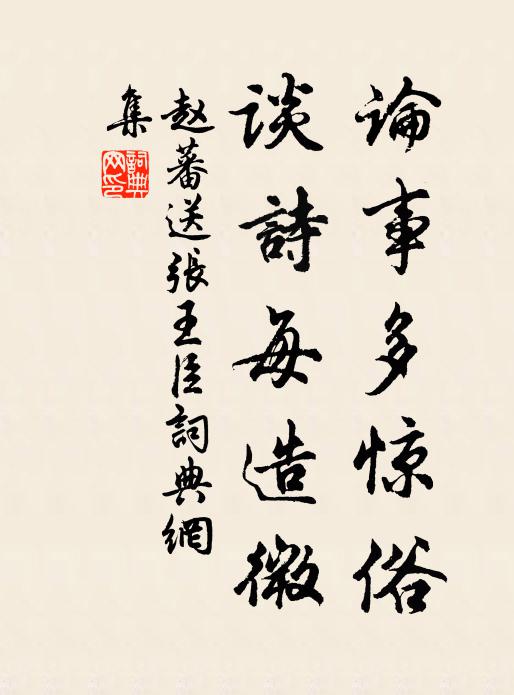 論事多惊俗
談詩每造微
赵蕃送張王臣詞典網
集
詞典
网印